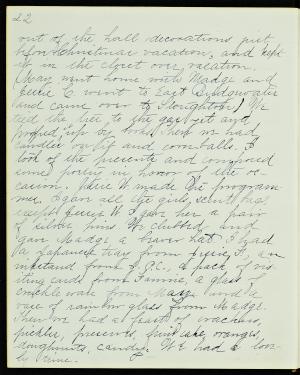 22
out of the hall decorations just
before Christmas vacation, and kept
it in the closet over vacation.
May went home with Madge and
C. went to East Bridgewater
and came over to Stoughton. We
tied the tree to the gas jet and
it up by that. Then we had
candles on it and corn balls. I
took of the presents and composed
some poetry in honor of the oc-
casion. W. made the programme
me. I gave all the girls, scrub bags
except W. I gave her a pair
of silver pins. We clubbed and
gave Madge a beaver hat. I had
a Japanese tray from, an
inkstand from J. C., a pack of vis-
iting cards from Fannie, a glass
crackle vase from May and a
vase of rainbow glass from Madge.
Then we had a feast of crackers,
pickles, preserves, fruit cake, oranges,
doughnuts, candy. We had a love-
ly time.